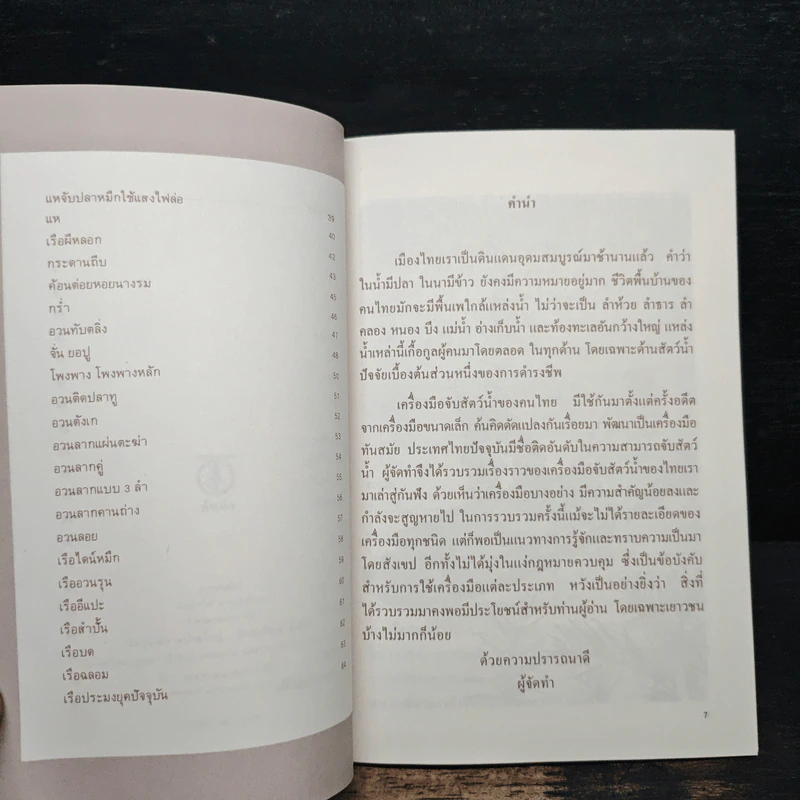 แหจับปลาหมึกใช้แสงไฟล่อ
แห 39
เรือผีหลอก 40
กระดานถีบ 42
ค้อนต่อยหอยนางรม 43
กร่ำ 45
อวนทับตลิ่ง 46
จั่น ยอปู 47
โพงพาง โพงพางหลัก 48
อวนติดปลาทู 50
อวนตังเก 51
อวนลากแผ่นตะฆ่า 52
อวนลากคู่ 53
อวนลากแบบ 3 ลำ 54
อวนลากคานถ่าง
อวนลอย 57
เรือไดน์หมึก 58
เรืออวนรุน 59
เรืออีแปะ 60
เรือสำปั้น 61
เรือบด 62
เรือฉลอม 63
เรือประมงยุคปัจจุบัน 64
คำนำ
เมืองไทยเราเป็นดินแดนอุดมสมบูรณ์มาช้านานแล้ว คำว่า
ในน้ำมีปลา ในนามีข้าว ยังคงมีความหมายอยู่มาก ชีวิตพื้นบ้านของ
คนไทยมักจะมีพื้นเพใกล้แหล่งน้ำ ไม่ว่าจะเป็น ลำห้วย ลำธาร ลำ
คลอง หนอง บึง แม่น้ำ อ่างเก็บน้ำ และท้องทะเลอันกว้างใหญ่ แหล่ง
น้ำเหล่านี้เกื้อกูลผู้คนมาโดยตลอด ในทุกด้าน โดยเฉพาะด้านสัตว์น้ำ
ปัจจัยเบื้องต้นส่วนหนึ่งของการดำรงชีพ
เครื่องมือจับสัตว์น้ำของคนไทย มีใช้กันมาตั้งแต่ครั้งอดีต
จากเครื่องมือขนาดเล็ก ค้นคิดดัดแปลงกันเรื่อยมา พัฒนาเป็นเครื่องมือ
ทันสมัย ประเทศไทยปัจจุบันมีชื่อติดอันดับในความสามารถจับสัตว์
น้ำ ผู้จัดทำจึงได้รวบรวมเรื่องราวของเครื่องมือจับสัตว์น้ำของไทยเรา
มาเล่าสู่กันฟัง ด้วยเห็นว่าเครื่องมือบางอย่าง มีความสำคัญน้อยลงและ
กำลังจะสูญหายไป ในการรวบรวมครั้งนี้แม้จะไม่ได้รายละเอียดของ
เครื่องมือทุกชนิด แต่ก็พอเป็นแนวทางการรู้จักและทราบความเป็นมา
โดยสังเขป อีกทั้งไม่ได้มุ่งในแง่กฎหมายควบคุม ซึ่งเป็นข้อบังคับ
สำหรับการใช้เครื่องมือแต่ละประเภท หวังเป็นอย่างยิ่งว่า สิ่งที่
ได้รวบรวมมาคงพอมีประโยชน์สำหรับท่านผู้อ่าน โดยเฉพาะเยาวชน
บ้างไม่มากก็น้อย
ด้วยความปรารถนาดี
ผู้จัดทำ
7